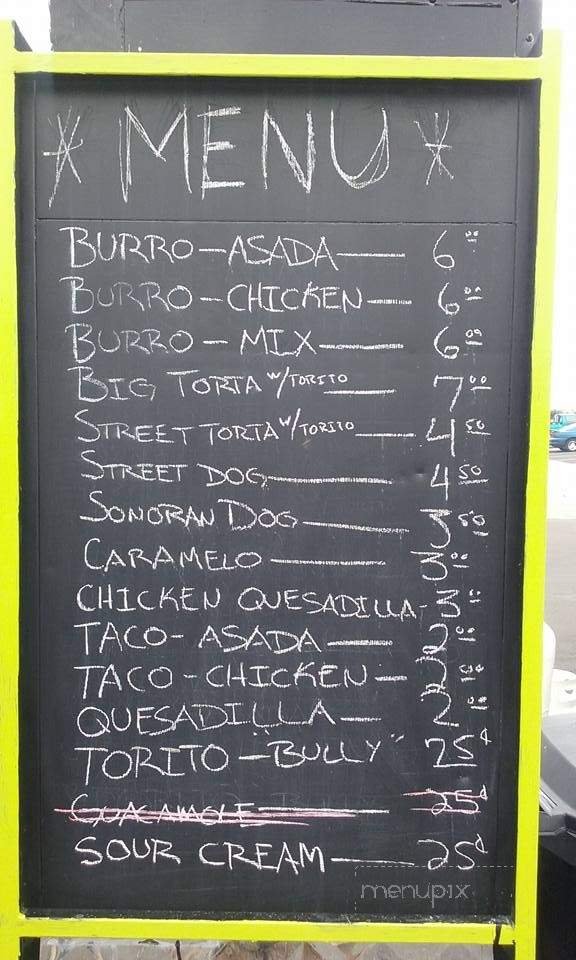 * MENU *
BURRO-ASADA 6 00
BURRO-CHICKEN 6 00
BURRO - MIX 6 00
BIG TORTA W/TORITO 7 00
STREET TORTA W/TORITO 4 50
STREET DOG 4 50
SONORAN DOG 3 50
CARAMELO 3 00
CHICKEN QUESADILLA - 3 00
TACO- ASADA 2 00
TACO-CHICKEN 2 00
QUESADILLA 2 00
TORITO - "BULLY" 25¢
GUACAMOLE 25¢
SOUR CREAM 25¢
menupix